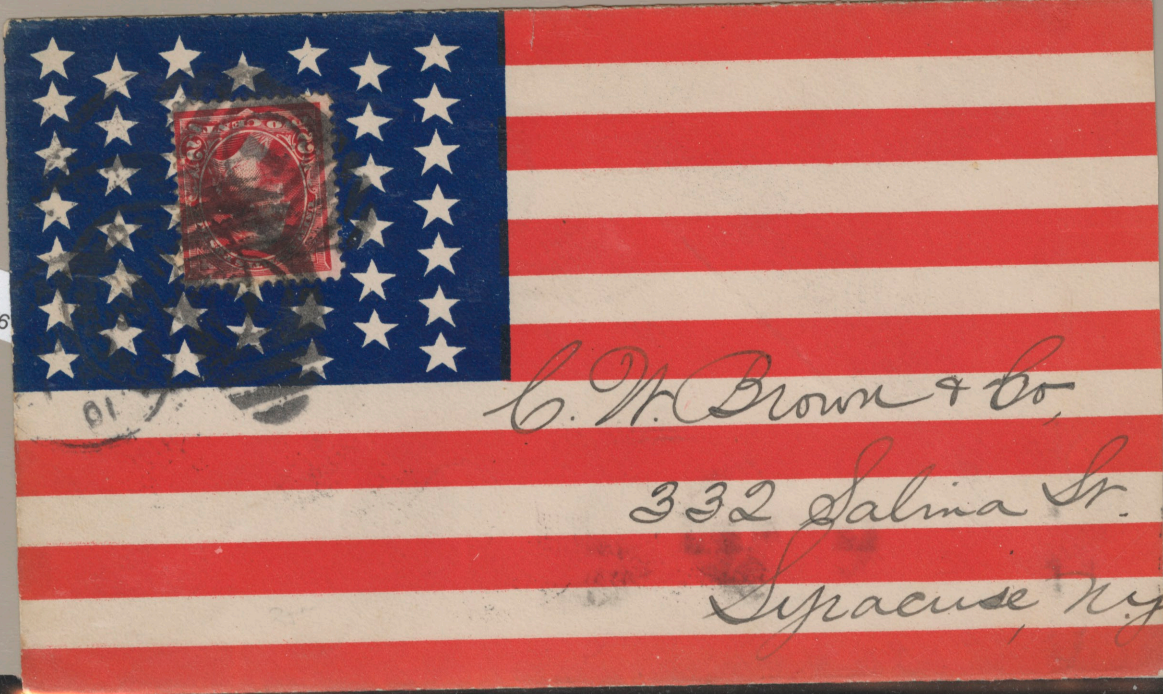 01
C. W. Brown & Co,
332 Salina St.
Syracuse, N.Y
6